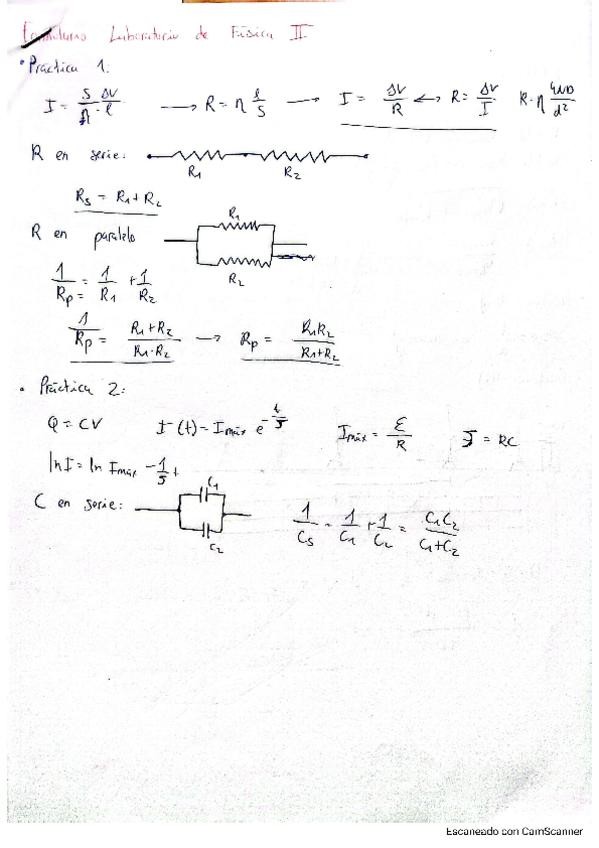 Laboratorio de Física II
• Práctica 1:
I = S/η · ΔV/l → R = η l/S → I = ΔV/R ↔ R = ΔV/I R = η 4ND/d²
R en serie: R₁ R₂
Rs = R₁ + R₂
R en paralelo R₁ R₂
1/Rp = 1/R₁ + 1/R₂
1/Rp = R₁+R₂/R₁·R₂ → Rp = R₁R₂/R₁+R₂
• Práctica 2:
Q = CV I(t) = Imáx e^-t/J Imáx = ε/R J = RC
ln I = ln Imáx - 1/J t
C en serie: C₁ C₂ 1/Cs = 1/C₁ + 1/C₂ = C₁C₂/C₁+C₂
Escaneado con CamScanner